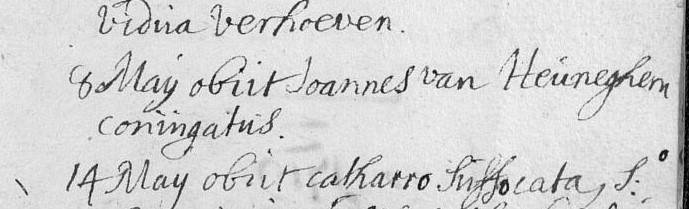 vidua verhoeven.
8 May obiit Joannes van Heuneghem
coniugatus.
14 May obiit catharro suffocata, S:°